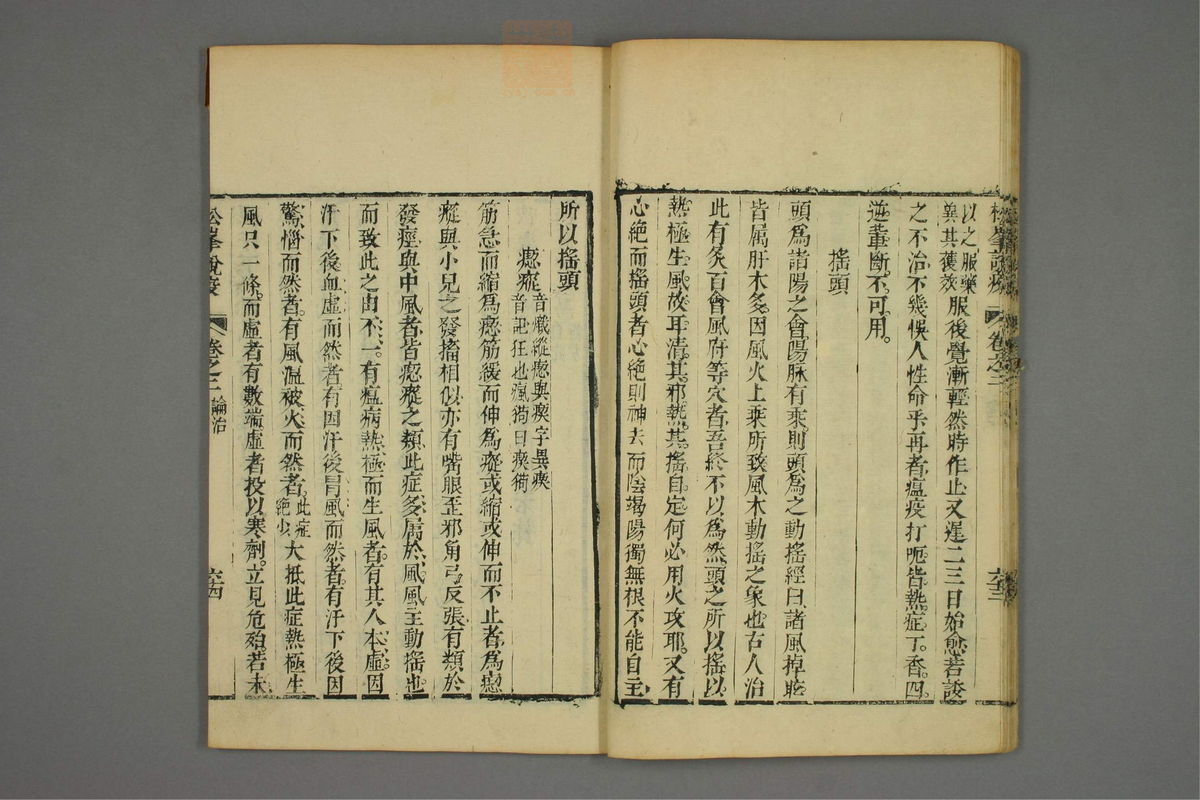 松峯說疫 卷之二 六十三
以之服藥
異其獲效服後覺漸輕然時作止又遲二三日始愈若誤
之不治不幾悞人性命乎再者瘟疫打呃皆熱症丁香四
逆輩斷不可用
搖頭
頭為諸陽之會陽脉有乘則頭為之動搖經曰諸風掉眩
皆属肝木多因風火上乘所致風木動搖之象也古人治
此有灸百會風府等穴者吾終不以為然頭之所以搖以
熱極生風故耳清其邪熱其搖自定何必用火攻耶又有
心絕而搖頭者心絕則神去而陰竭陽獨無根不能自主
所以搖頭
瘛瘲音熾縱瘛與瘈字異瘈
音記狂也瘋狗曰瘈狗
筋急而縮為瘛筋緩而伸為瘲或縮或伸而不止者為瘛
瘲與小兒之發搐相似亦有嘴眼歪邪角弓反張有類於
發痙與中風者皆瘛瘲之類此症多属於風風主動搖也
而致此之由不一有瘟病熱極而生風者有其人本虛因
汗下後血虛而然者有因汗後冒風而然者有汗下後因
驚惱而然者有風温被火而然者此症
絕少大抵此症熱極生
風只一條而虛者有數端虛者投以寒劑立見危殆若未
松峯說疫 卷之二 論治 六十四